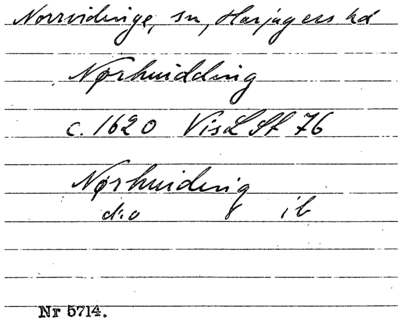 Norrvidinge, sn, Harjagers hd
Nørhuidding
c. 1620 VisL St 76
Nørhuiding
d:o ib
Nr 5714.